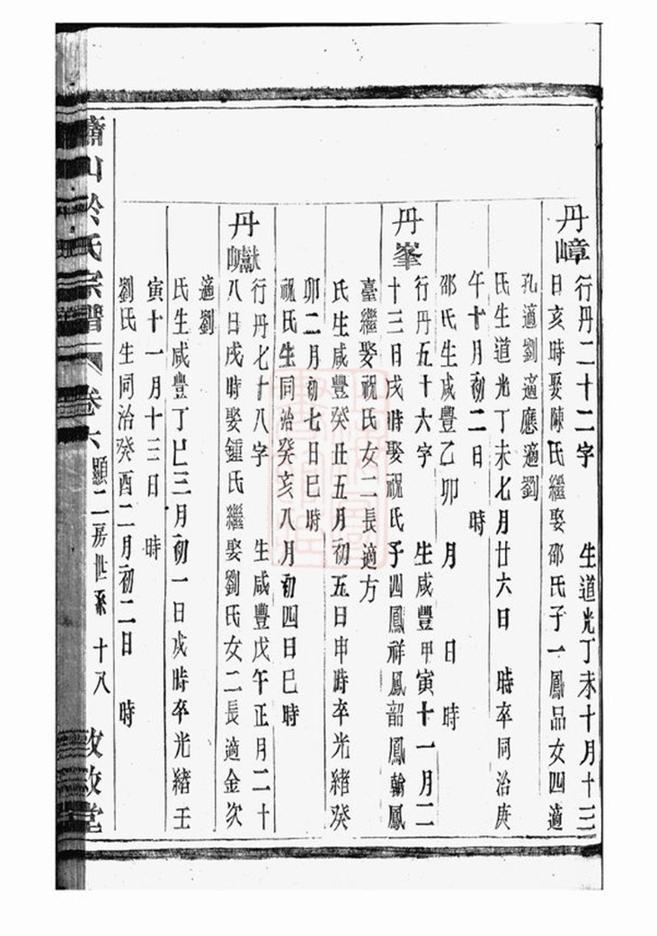 丹嶂
行丹二十二字 生道光丁未十月十三
日亥時娶陳氏繼娶邵氏子一鳳品女四適
孔適劉適應適劉
氏生道光丁未七月廿六日 時卒同治庚
午十月初二日 時
邵氏生咸豐乙卯 月 日 時
丹峯
行丹五十六字 生咸豐甲寅十一月二
十三日戌時娶祝氏子四鳳祥鳳韶鳳翰鳳
臺繼娶祝氏女二長適方
氏生咸豐癸丑五月初五日申時卒光緒癸
卯二月初七日巳時
祝氏生同治癸亥八月初四日巳時
丹巘
行丹七十八字 生咸豐戊午正月二十
八日戌時娶鍾氏繼娶劉氏女二長適金次
適劉
氏生咸豐丁巳三月初一日戌時卒光緒壬
寅十一月十三日 時
劉氏生同治癸酉二月初二日 時
蕭山於氏宗譜 卷六 顯二房世系 十八 堂